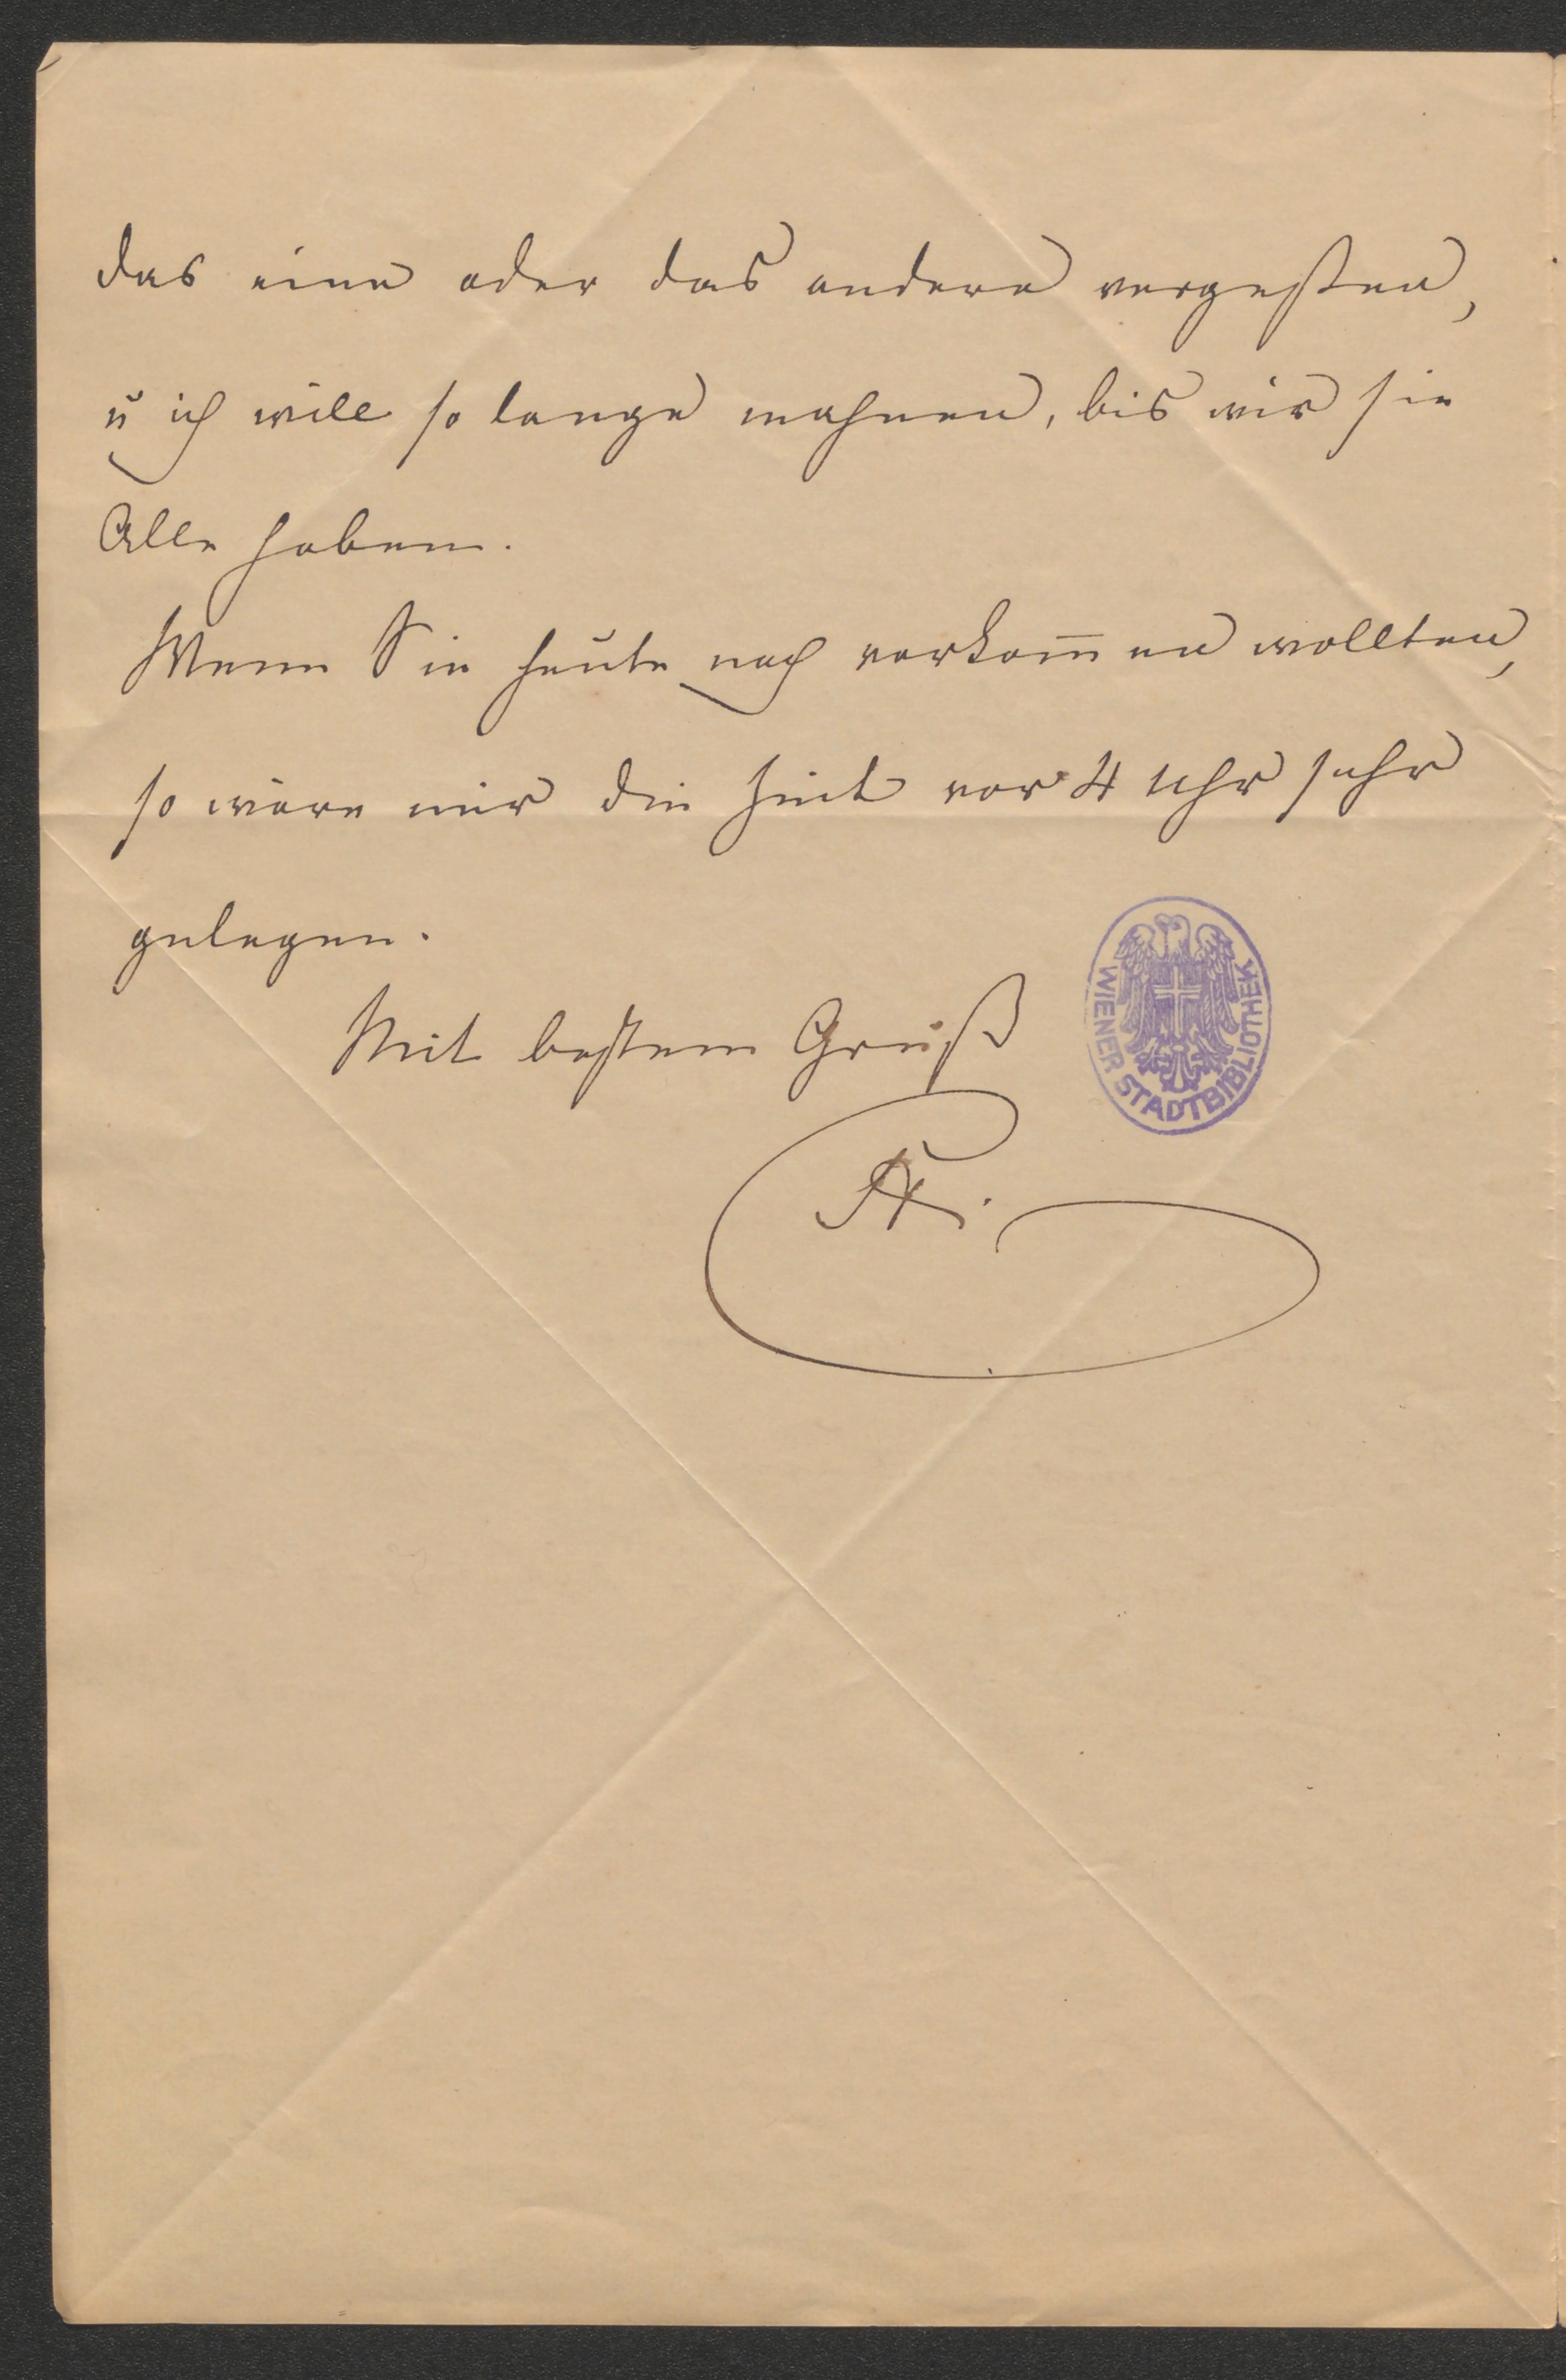 das eine oder das andere vergeßen,
u ich will so lange mahnen, bis wir sie
Alle haben.
Wenn Sie heute noch vorkom̄en wollten,
so wäre mir die Zeit vor 4 Uhr sehr
gelegen.
Mit bestem Gruß
WIENER STADTBIBLIOTHEK